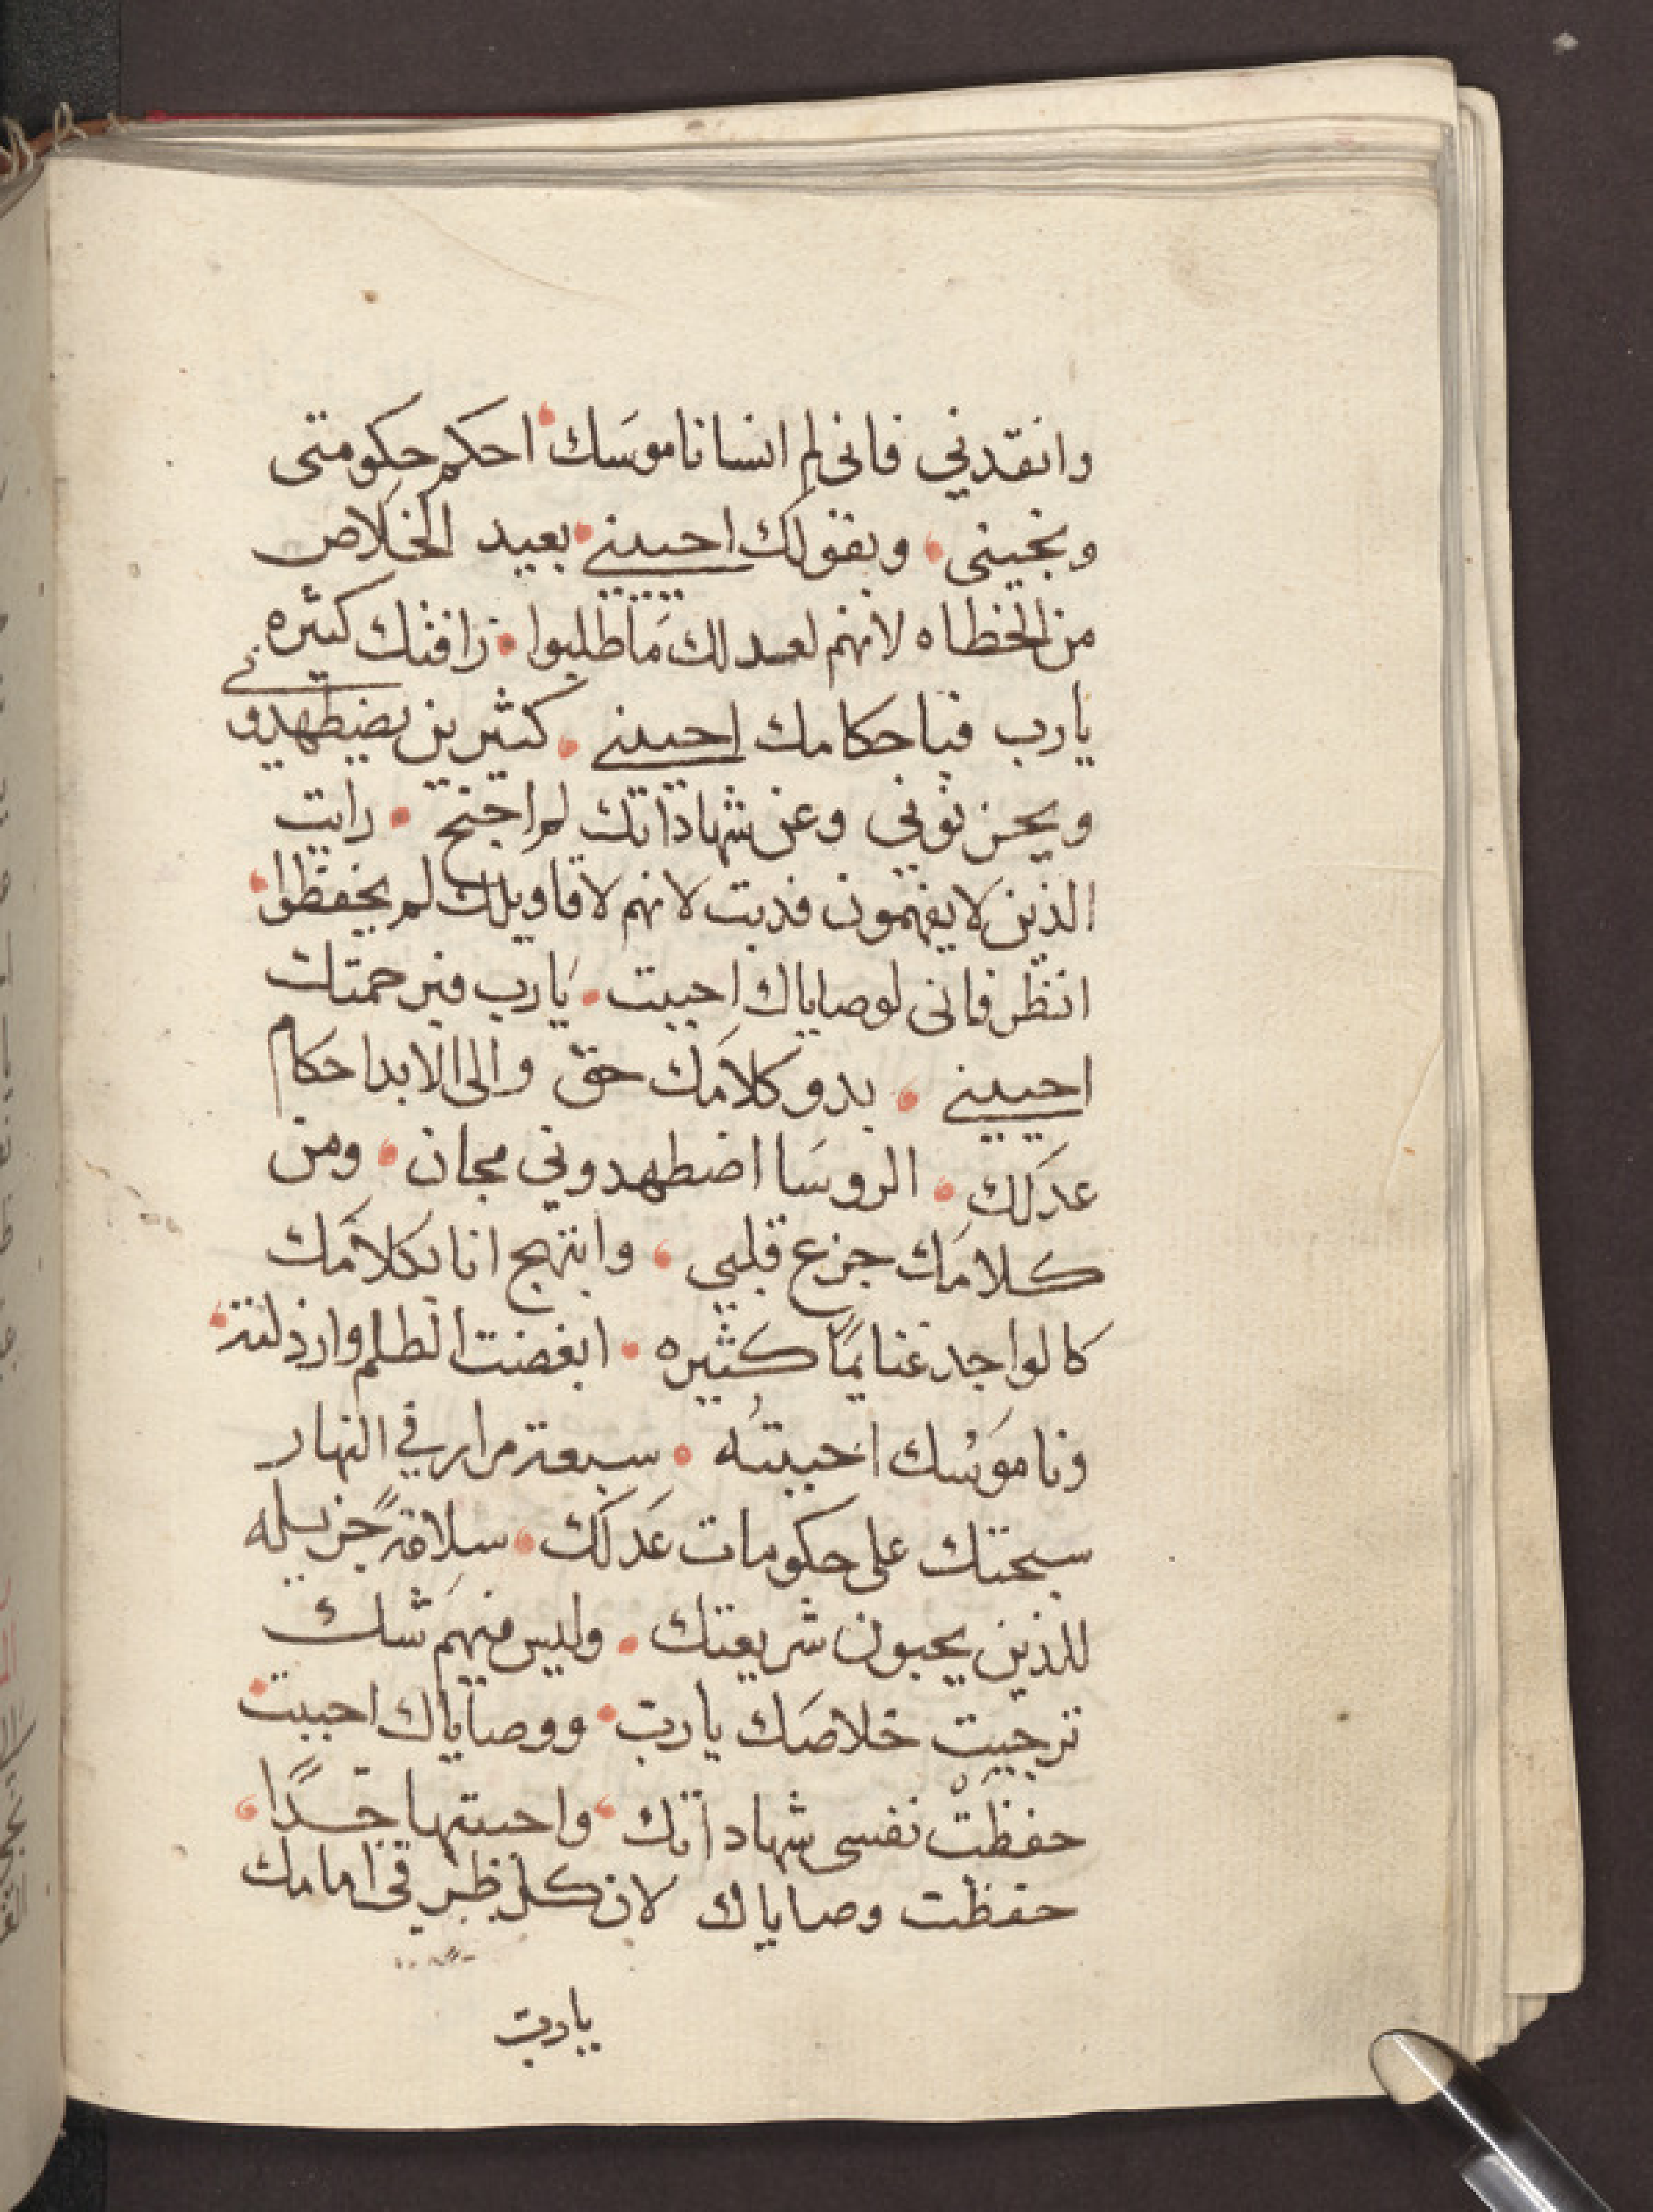 وانقدني فانى لم انسا ناموسك احكم حكومتى
ونجينى وبقولك احيينى بعيد الخلاص
من الخطاه لانهم لعدلك ما طلبوا رافتك كثيره
يارب فباحكامك احيينى كثيرين يضطهدونى
ويحزنوني وعن شهاداتك لم اجنح رايت
الذين لا يفهمون فدبت لانهم لاقاويلك لم يحفظوا
انظر فانى لوصاياك احببت يارب فبرحمتك
احيينى بدو كلامك حق والى الابد احكام
عدلك الروسا اضطهدوني مجان ومن
كلامك جزع قلبي وابتهج انا بكلامك
كالواجد غنايمًا كثيره ابغضت الظلم وارذلته
وناموسك احببته سبعة مرار في النهار
سبحتك على حكومات عدلك سلامةً جزيله
للذين يحبون شريعتك وليس منهم شك
ترجيت خلاصك يارب ووصاياك احببت
حفظتْ نفسى شهاداتك واحببتها جدًا
حفظت وصاياك لان كل طرقى امامك
يارب